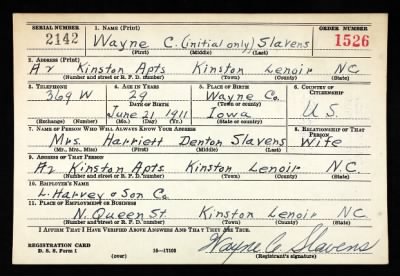 SERIAL NUMBER 1. NAME (Print) ORDER NUMBER
2142 Wayne C. (initial only) Slavens 1526
(First) (Middle) (Last)
2. ADDRESS (Print)
A2 Kinston Apts Kinston Lenoir N.C.
(Number and street or R. F. D. number) (Town) (County) (State)
3. TELEPHONE 4. AGE IN YEARS 5. PLACE OF BIRTH 6. COUNTRY OF CITIZENSHIP
369 W 29 Wayne Co.
DATE OF BIRTH (Town or county)
June 21 1911 Iowa U.S.
(Exchange) (No.) (Mo.) (Day) (Yr.) (State or country)
7. NAME OF PERSON WHO WILL ALWAYS KNOW YOUR ADDRESS 8. RELATIONSHIP OF THAT PERSON
Mrs. Harriett Denton Slavens Wife
(Mr., Mrs., Miss) (First) (Middle) (Last)
9. ADDRESS OF THAT PERSON
A2 Kinston Apts Kinston Lenoir N.C.
(Number and street or R. F. D. number) (Town) (County) (State)
10. EMPLOYER'S NAME
L. Harvey & Son Co.
11. PLACE OF EMPLOYMENT OR BUSINESS
N. Queen St. Kinston Lenoir N.C.
(Number and street or R. F. D. number) (Town) (County) (State)
I AFFIRM THAT I HAVE VERIFIED ABOVE ANSWERS AND THAT THEY ARE TRUE.
REGISTRATION CARD
D. S. S. Form 1 (over) 16—17105 Wayne C. Slavens
(Registrant's signature)